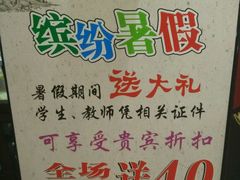 缤纷暑假
暑假期间送大礼
学生、教师凭相关证件
可享受贵宾折扣
全场送40